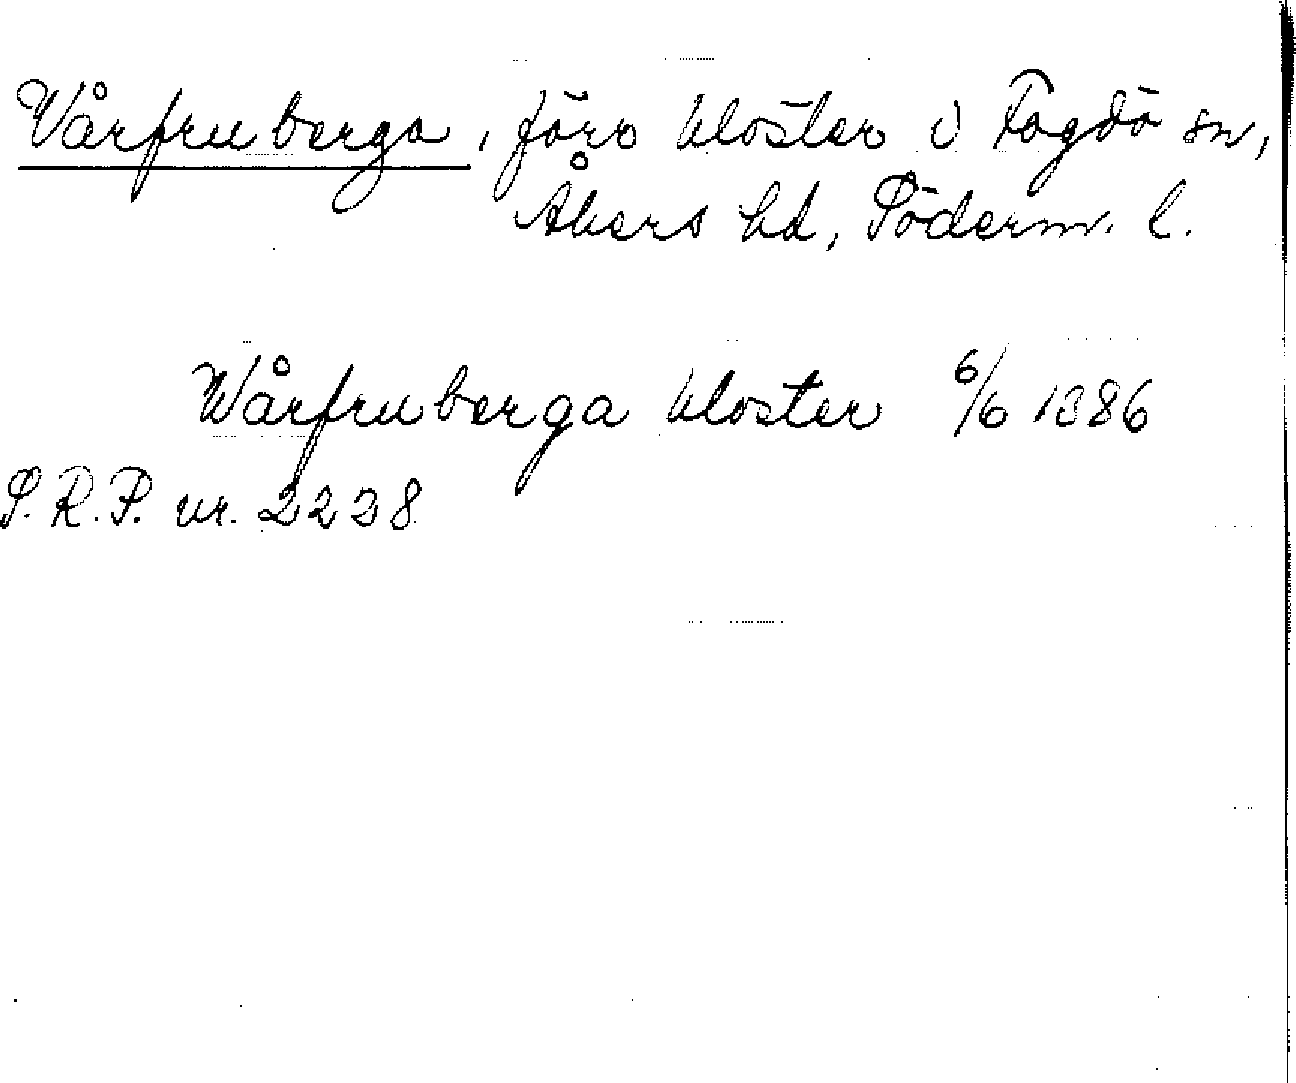 Vårfruberga, förr kloster i Fogdö sn,
Åkers hd, Söderm. l.
Wårfruberga kloster 6/6 1386
S.R.P. nr. 2228